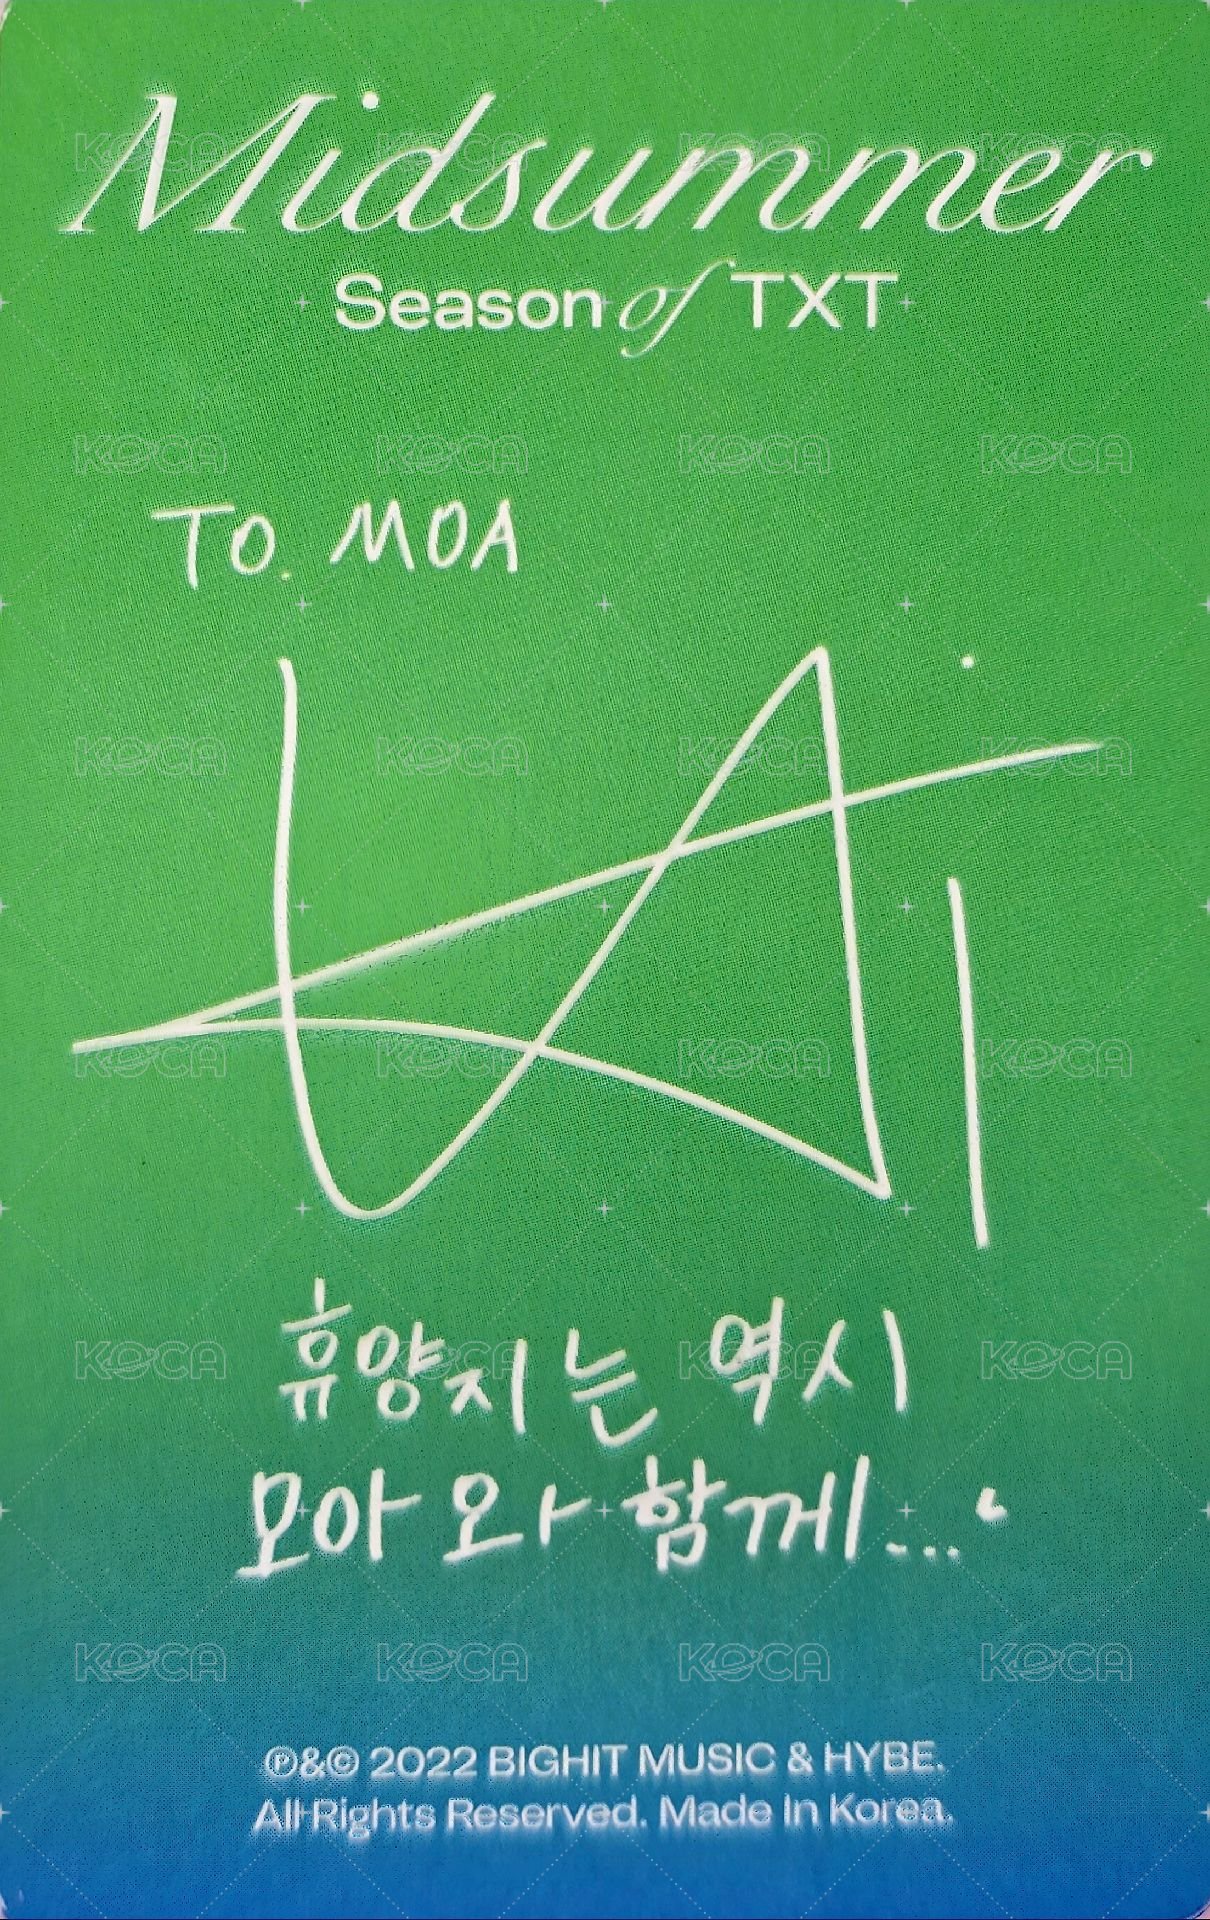 Midsummer
Season of TXT
TO. MOA
KAi
휴양지는 역시
모아와 함께...
℗&© 2022 BIGHIT MUSIC & HYBE.
All Rights Reserved. Made In Korea.
KOCA